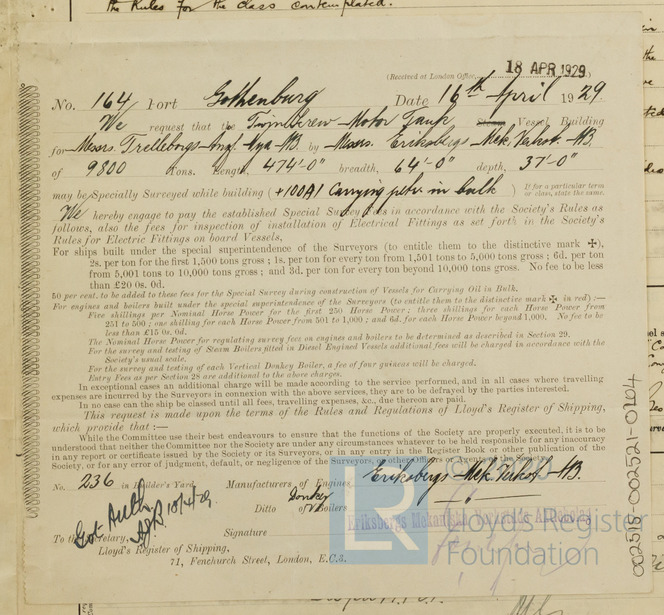 the Rules for the class contemplated.
(Received at London Office, 18 APR 1929)
No. 164 Port Gothenburg Date 16th April 1929
We request that the Twin Screw Motor Tank Steam Vessel Building
for Messrs. Trelleborgs Ång. Nya AB. by Messrs. Eriksbergs Mek. Verkst. AB.
of 9800 tons. Length, 474'-0" breadth, 64'-0" depth, 37'-0"
may be Specially Surveyed while building ( +100A1 Carrying petr in bulk ) If for a particular term or class, state the same.
We hereby engage to pay the established Special Survey Fees in accordance with the Society's Rules as
follows, also the fees for inspection of installation of Electrical Fittings as set forth in the Society's
Rules for Electric Fittings on board Vessels,
For ships built under the special superintendence of the Surveyors (to entitle them to the distinctive mark ✠),
2s. per ton for the first 1,500 tons gross; 1s. per ton for every ton from 1,501 tons to 5,000 tons gross; 6d. per ton
from 5,001 tons to 10,000 tons gross; and 3d. per ton for every ton beyond 10,000 tons gross. No fee to be less
than £20 0s. 0d.
50 per cent. to be added to these fees for the Special Survey during construction of Vessels for Carrying Oil in Bulk.
For engines and boilers built under the special superintendence of the Surveyors (to entitle them to the distinctive mark ✠ in red) :—
Five shillings per Nominal Horse Power for the first 250 Horse Power; three shillings for each Horse Power from
251 to 500; one shilling for each Horse Power from 501 to 1,000; and 6d. for each Horse Power beyond 1,000. No fee to be
less than £15 0s. 0d.
The Nominal Horse Power for regulating survey fees on engines and boilers to be determined as described in Section 29.
For the survey and testing of Steam Boilers fitted in Diesel Engined Vessels additional fees will be charged in accordance with the
Society's usual scale.
For the survey and testing of each Vertical Donkey Boiler, a fee of four guineas will be charged.
Entry Fees as per Section 28 are additional to the above charges.
In exceptional cases an additional charge will be made according to the service performed, and in all cases where travelling
expenses are incurred by the Surveyors in connection with the above services, they are to be defrayed by the parties interested.
In no case can the ship be classed until all fees, travelling expenses, &c., due thereon are paid.
This request is made upon the terms of the Rules and Regulations of Lloyd's Register of Shipping,
which provide that :—
While the Committee use their best endeavours to ensure that the functions of the Society are properly executed, it is to be
understood that neither the Committee nor the Society are under any circumstances whatever to be held responsible for any inaccuracy
in any report or certificate issued by the Society or its Surveyors, or in any entry in the Register Book or other publication of the
Society, or for any error of judgment, default, or negligence of the Surveyors, or other Officers or Agents of the Society.
No. 236 in Builder's Yard. Manufacturers of Engines, Eriksbergs Mek. Verkst. AB.
Ditto of Donkey Boilers
Eriksbergs Mekaniska Verkstads Aktiebolag
Got. Auth.
18/4/29
Signature
To the Secretary,
Lloyd's Register of Shipping,
71, Fenchurch Street, London, E.C.3.
LR
Lloyd's Register
Foundation
002515-002521-0107L